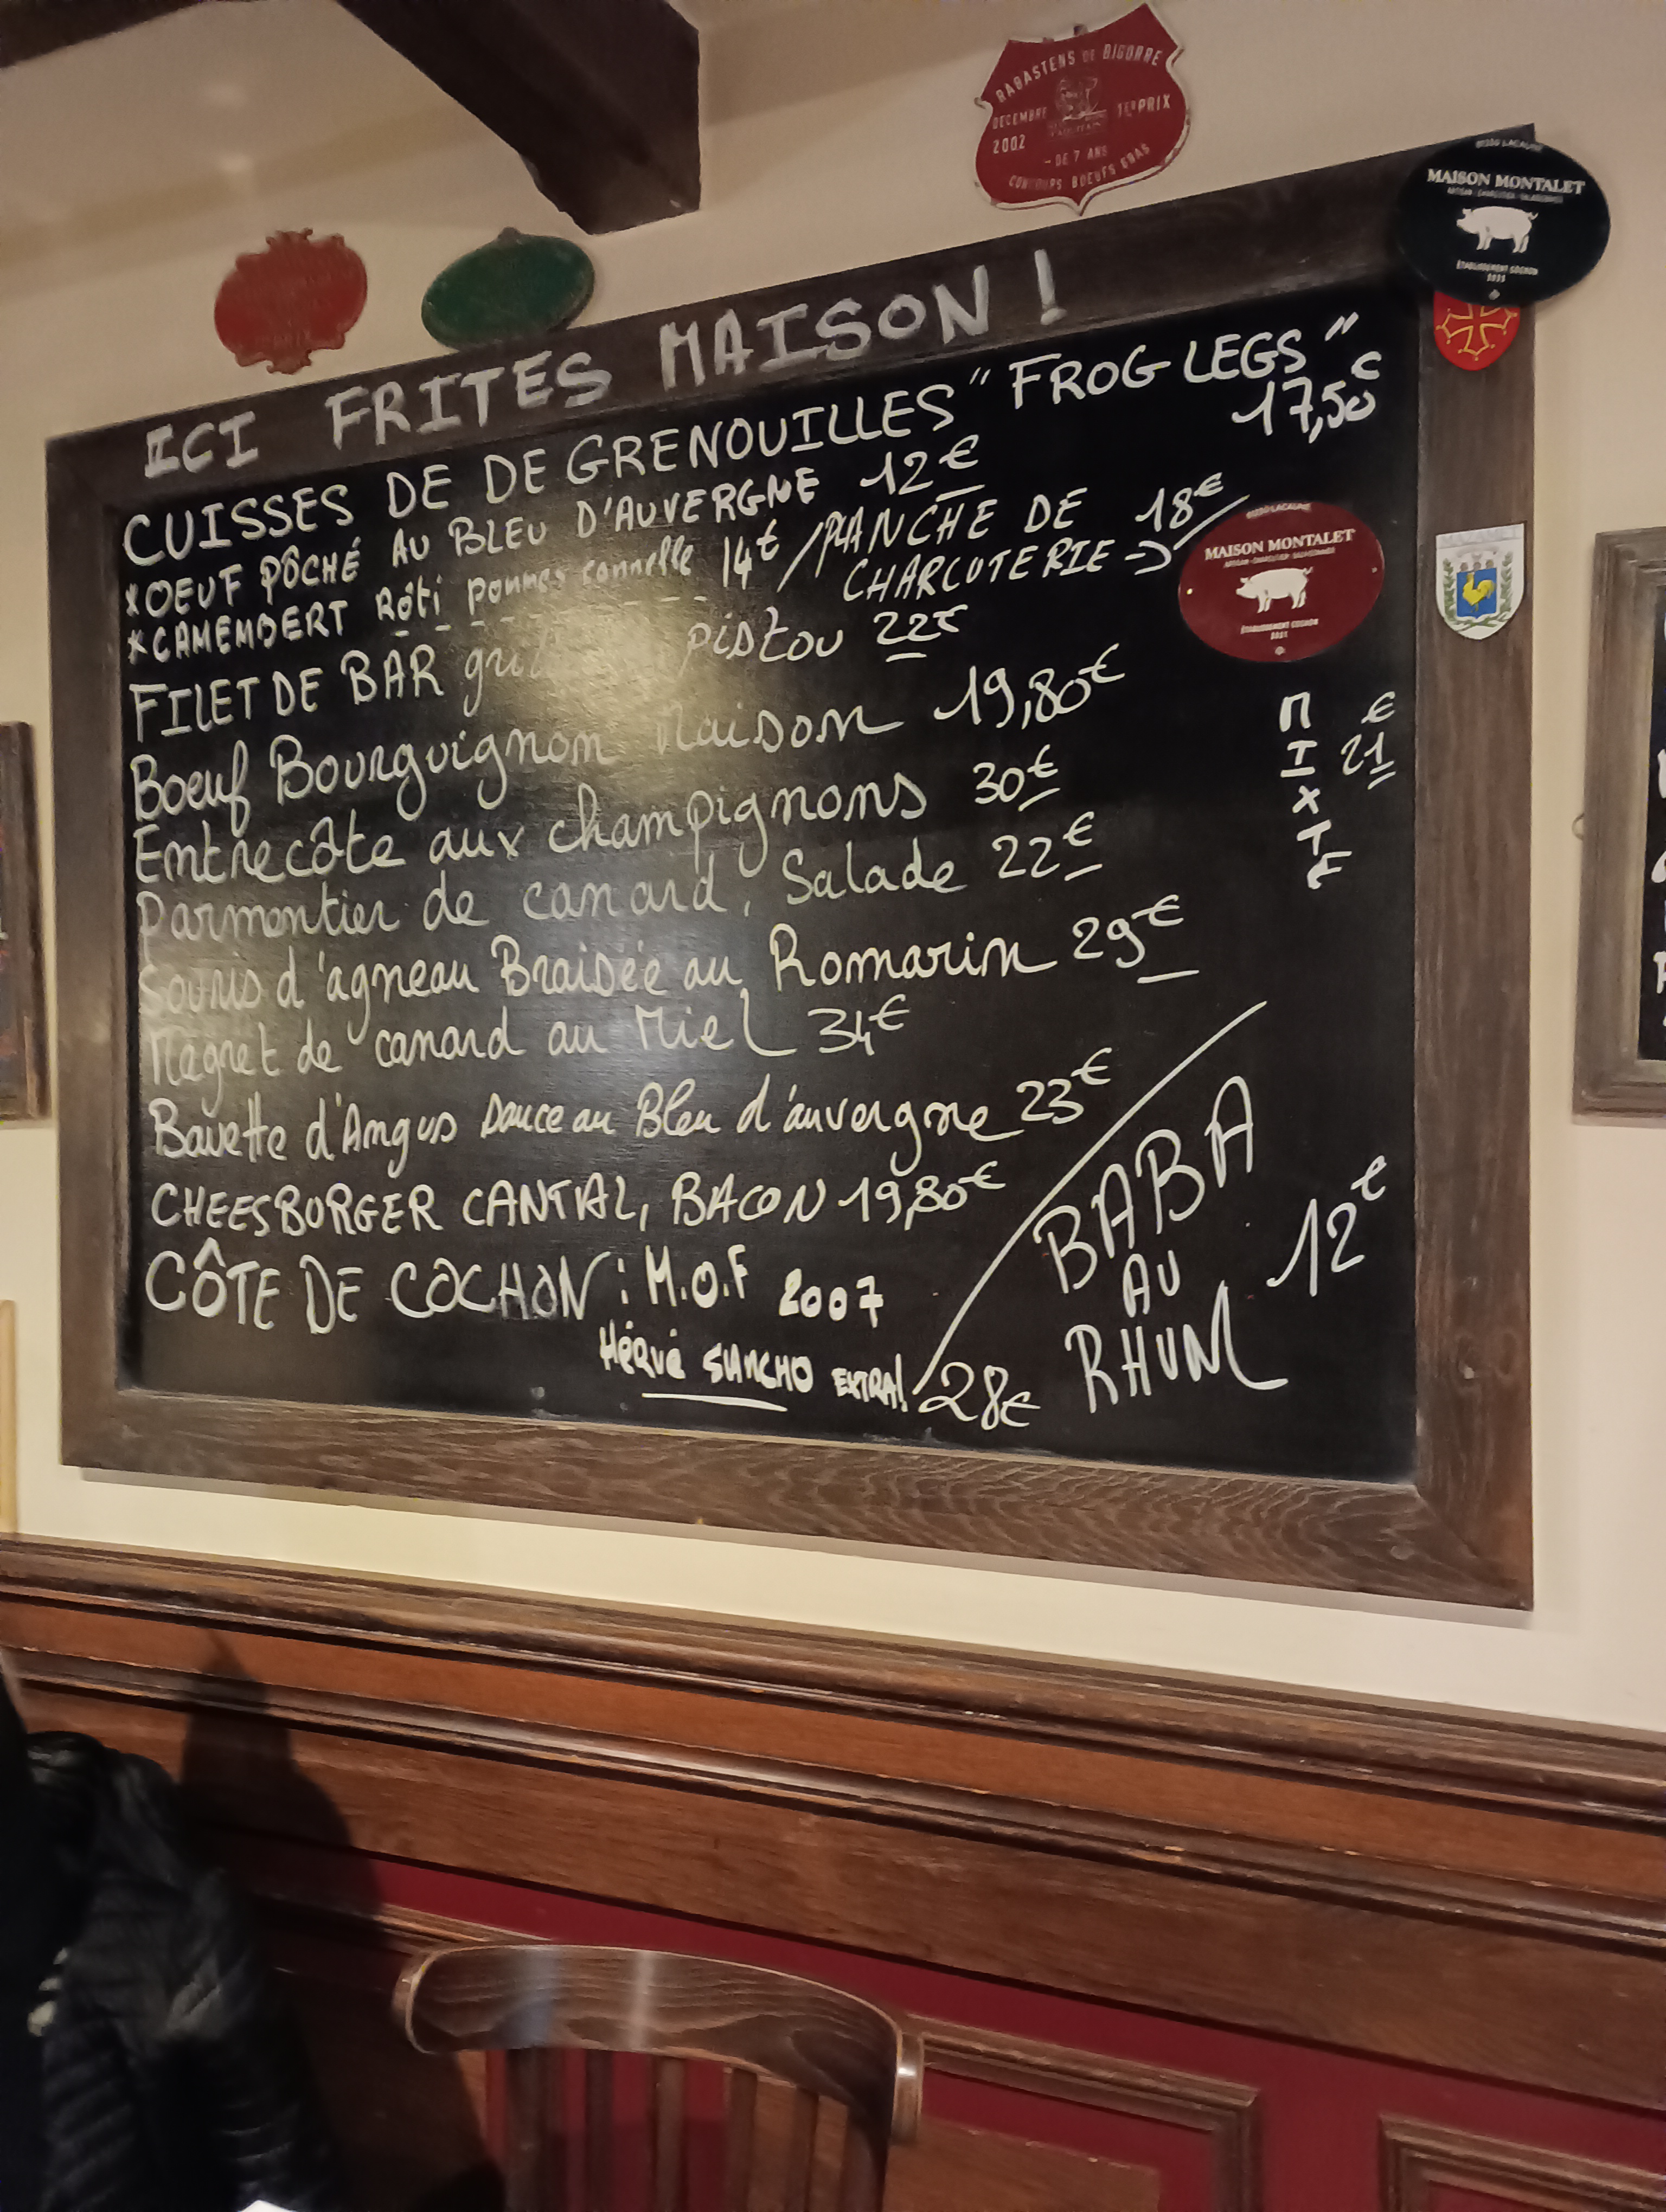 RABASTENS DE BIGORRE
DECEMBRE 1ER PRIX
2002
- DE 7 ANS
CONCOURS BOEUFS GRAS
81230 LACAUNE
MAISON MONTALET
ÉTABLISSEMENT COGNON
ICI FRITES MAISON !
CUISSES DE DE GRENOUILLES "FROG LEGS"
17,50€
*OEUF PÔCHÉ AU BLEU D'AUVERGNE 12€
*CAMEMBERT Rôti pommes cannelle 14€ / PLANCHE DE CHARCUTERIE -> 18€
81230 LACAUNE
MAISON MONTALET
ÉTABLISSEMENT COGNON
FILET DE BAR pistou 22€
Boeuf Bourguignon Maison 19,80€
MIXTE 21€
Entrecôte aux champignons 30€
Parmentier de canard, Salade 22€
Souris d'agneau Braisée au Romarin 29€
Magret de canard au Miel 34€
Bavette d'Angus Sauce au Bleu d'auvergne 23€
CHEESBURGER CANTAL, BACON 19,80€
CÔTE DE COCHON : M.O.F 2007
Hérvé SANCHO EXTRA! 28€
BABA
AU
RHUM
12€